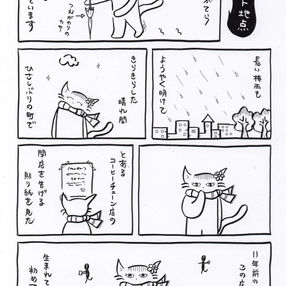 ト地点
がてら!
つえがわりの
カサ
います
長い梅雨も
ようやく明けて
きらきらした
晴れ間
ひさしぶりの町で
とある
コーヒーチェーン店の
閉店を告げる
貼り紙を見た
11年前の
この店
生まれて
初めて